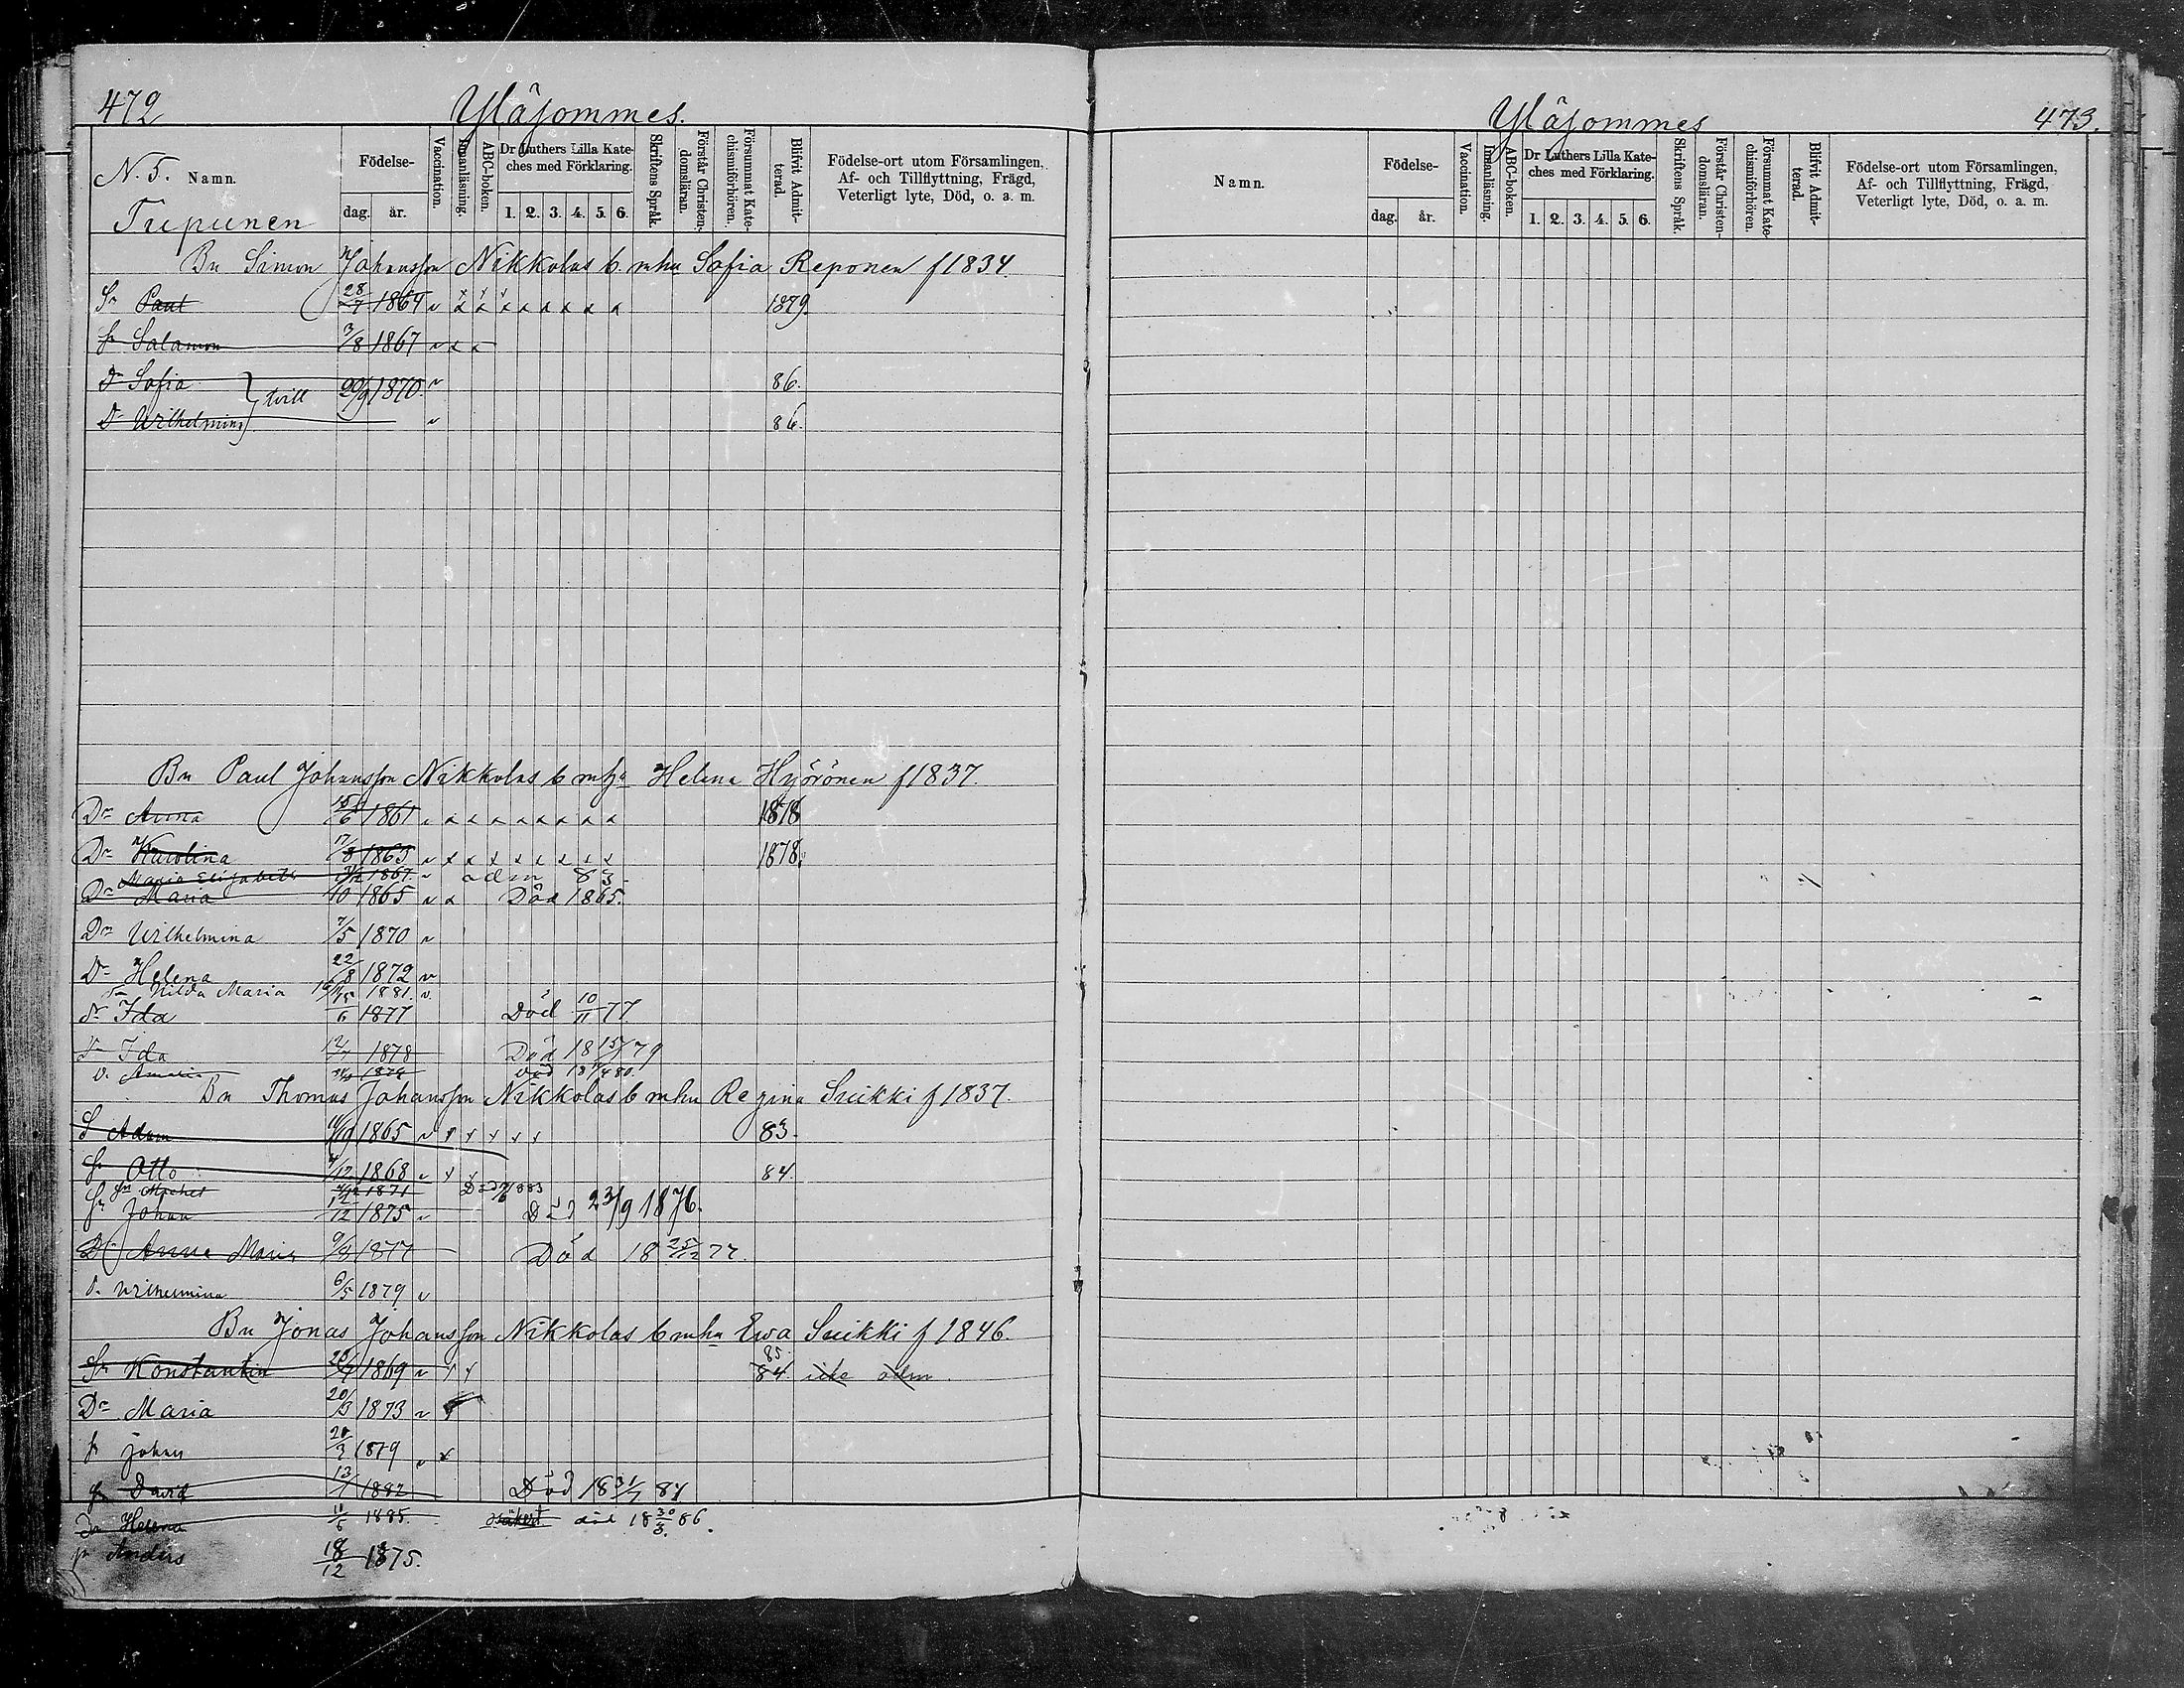 472 Yläjommes.
N. 5. Namn.
Födelse-
dag. år.
Vaccination.
Innanläsning.
ABC-boken.
Dr Luthers Lilla Kate-
ches med Förklaring.
1. 2. 3. 4. 5. 6.
Skriftens Språk.
Förstår Christen-
domsläran.
Försummat Kate-
chismiförhören.
Blifvit Admit-
terad.
Födelse-ort utom Församlingen,
Af- och Tillflyttning, Frägd,
Veterligt lyte, Död, o. a. m.
Bn Simon Johansson Nikkolas b. mhu Sofia Reponen f 1834
Sn Paul 28/7 1864 v x x x x x x x x 1879.
Sn Salamon 3/8 1867 v x x
Dr Sofia 20/9 1870. v 86.
tvill
Dr Wilhelmina v 86.
Bn Paul Johansson Nikkolas b mha Helena Hyörönen f 1837.
Dr Anna 1861 x x x x x x x x 1878
Dr Karolina 17/8 1863 v x x x x x x x x 1878.
Maria Elisabeth 1867. v adm 83.
Dr Maria 1865 v x Död 1865.
Dr Wilhelmina 7/5 1870 v
Dr Helena 22/8 1872 v
Hilda Maria 1881. v.
Dr Ida 1877 Död 10/11 77.
Dr Ida 12/7 1878 Död 18 15/ 79
D. Amalia Död
Bn Thomas Johansson Nikkolas b mhu Regina Suikki f 1837.
S Adam 1865 v x x x x x 83.
Sn Otto 1868 v x 84.
Sn Michel 1871 1883
Sn Johan 1875 v Död 23/9 1876.
Dr Anna Maria 9/4 1877 Död 18 25/12 77.
D. Wilhelmina 6/5 1879 v
Bn Jonas Johansson Nikkolas b mhu Ewa Suikki f 1846.
85.
Sn Konstantin 1869 v x x 84 icke adm.
Dr Maria 20/3 1873 v
Sn Johan 20/3 1879 v x
Sn David 1882 Död 18 31/7 84
Dr Helena 11/5 1885. död 18 30/3 86.
Sn Anders 18/12 1875.
Yläjommes 473.
Namn.
Födelse-
dag. år.
Vaccination.
Innanläsning.
ABC-boken.
Dr Luthers Lilla Kate-
ches med Förklaring.
1. 2. 3. 4. 5. 6.
Skriftens Språk.
Förstår Christen-
domsläran.
Försummat Kate-
chismiförhören.
Blifvit Admit-
terad.
Födelse-ort utom Församlingen,
Af- och Tillflyttning, Frägd,
Veterligt lyte, Död, o. a. m.